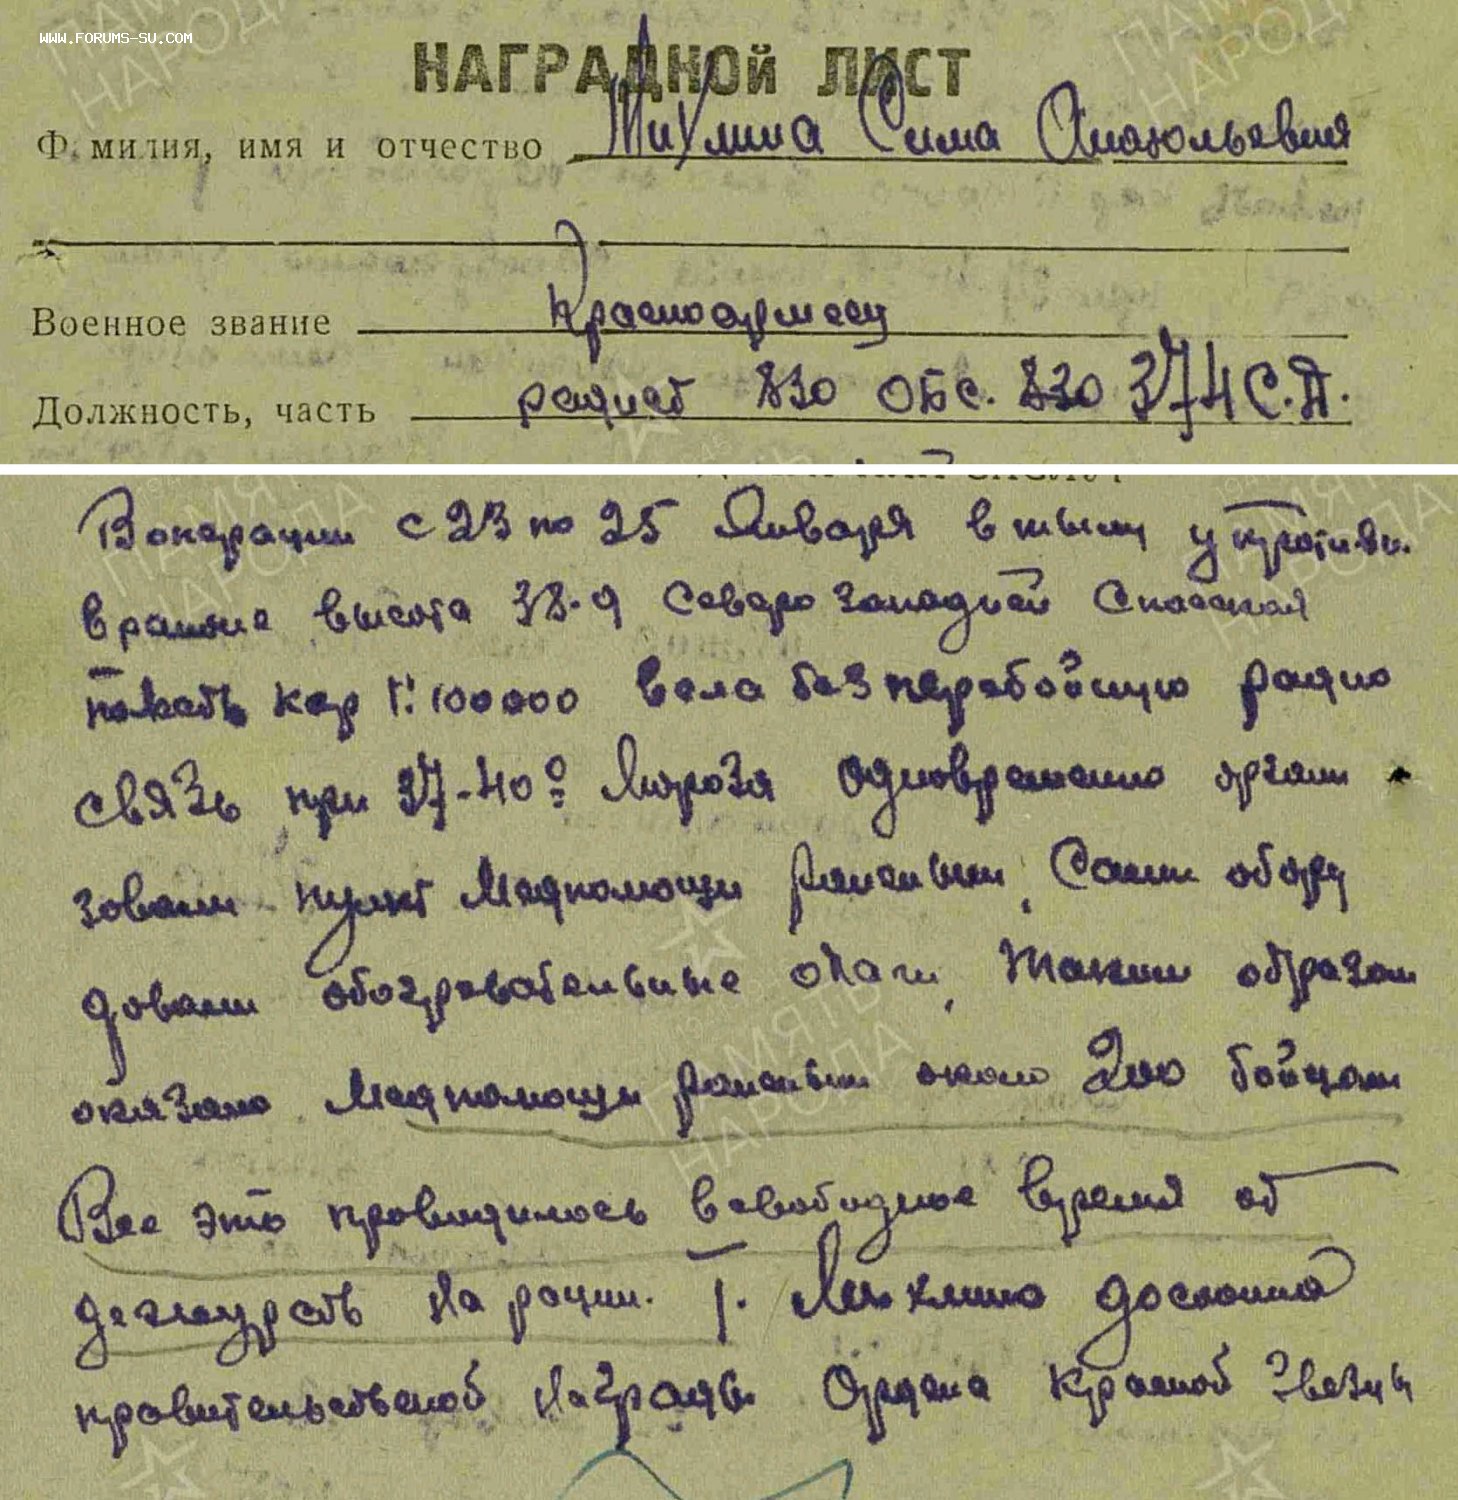 WWW.FORUMS-SU.COM
НАГРАДНОЙ ЛИСТ
Ф. милия, имя и отчество Михлина Сима Анатольевна
Военное звание Красноармеец
Должность, часть радист 830 ОБС. 830 374 С.Д.
В операции с 23 по 25 Января в тылу у против.
в районе высота 38.9 Северо западней Спасская
полисть кар 1:100000 вела безперебойную радио
связь при 37-40° Мороза одновременно органи
зовали пункт Медпомощи раненым, Сами обору
довали обогревательные очаги, Таким образом
оказано Медпомощи раненым около 200 бойцам
Все это проводилось в свободное время от
дежурств на рации. Т. Михлина достойна
правительственной Награды Ордена Красной Звезды
ПАМЯТЬ
НАРОДА